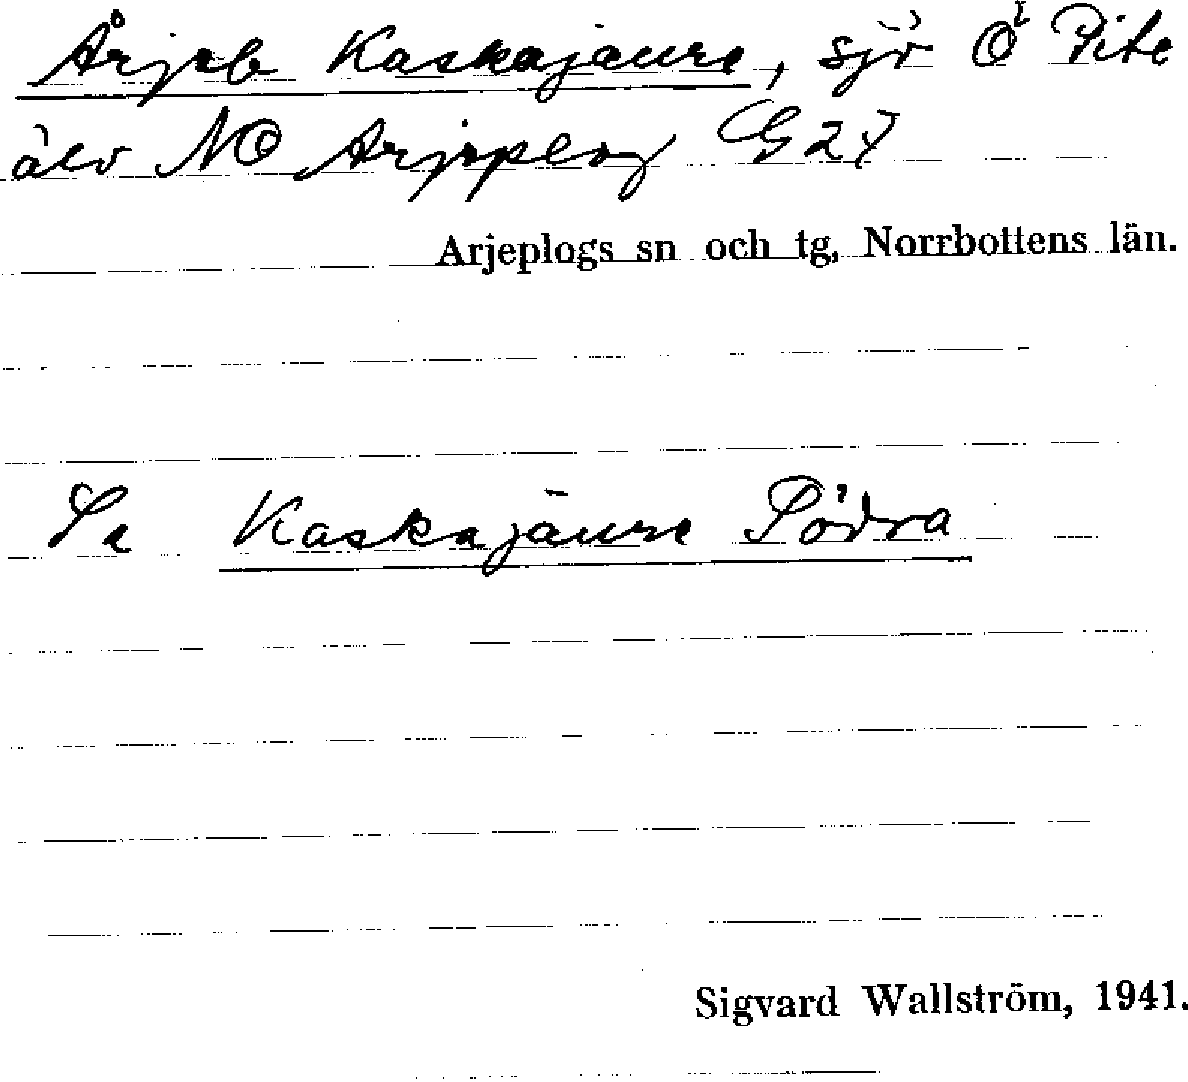 Årjeb Kaskajaure, sjö Ö Pite
älv NO Arjeplog G27
Arjeplogs sn och tg, Norrbottens län.
Se Kaskajaure Södra
Sigvard Wallström, 1941.